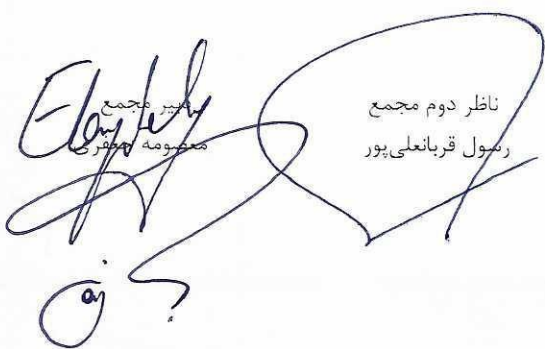 ناظر دوم مجمع
رسول قربانعلی‌پور
دبیر مجمع
معصومه جعفری